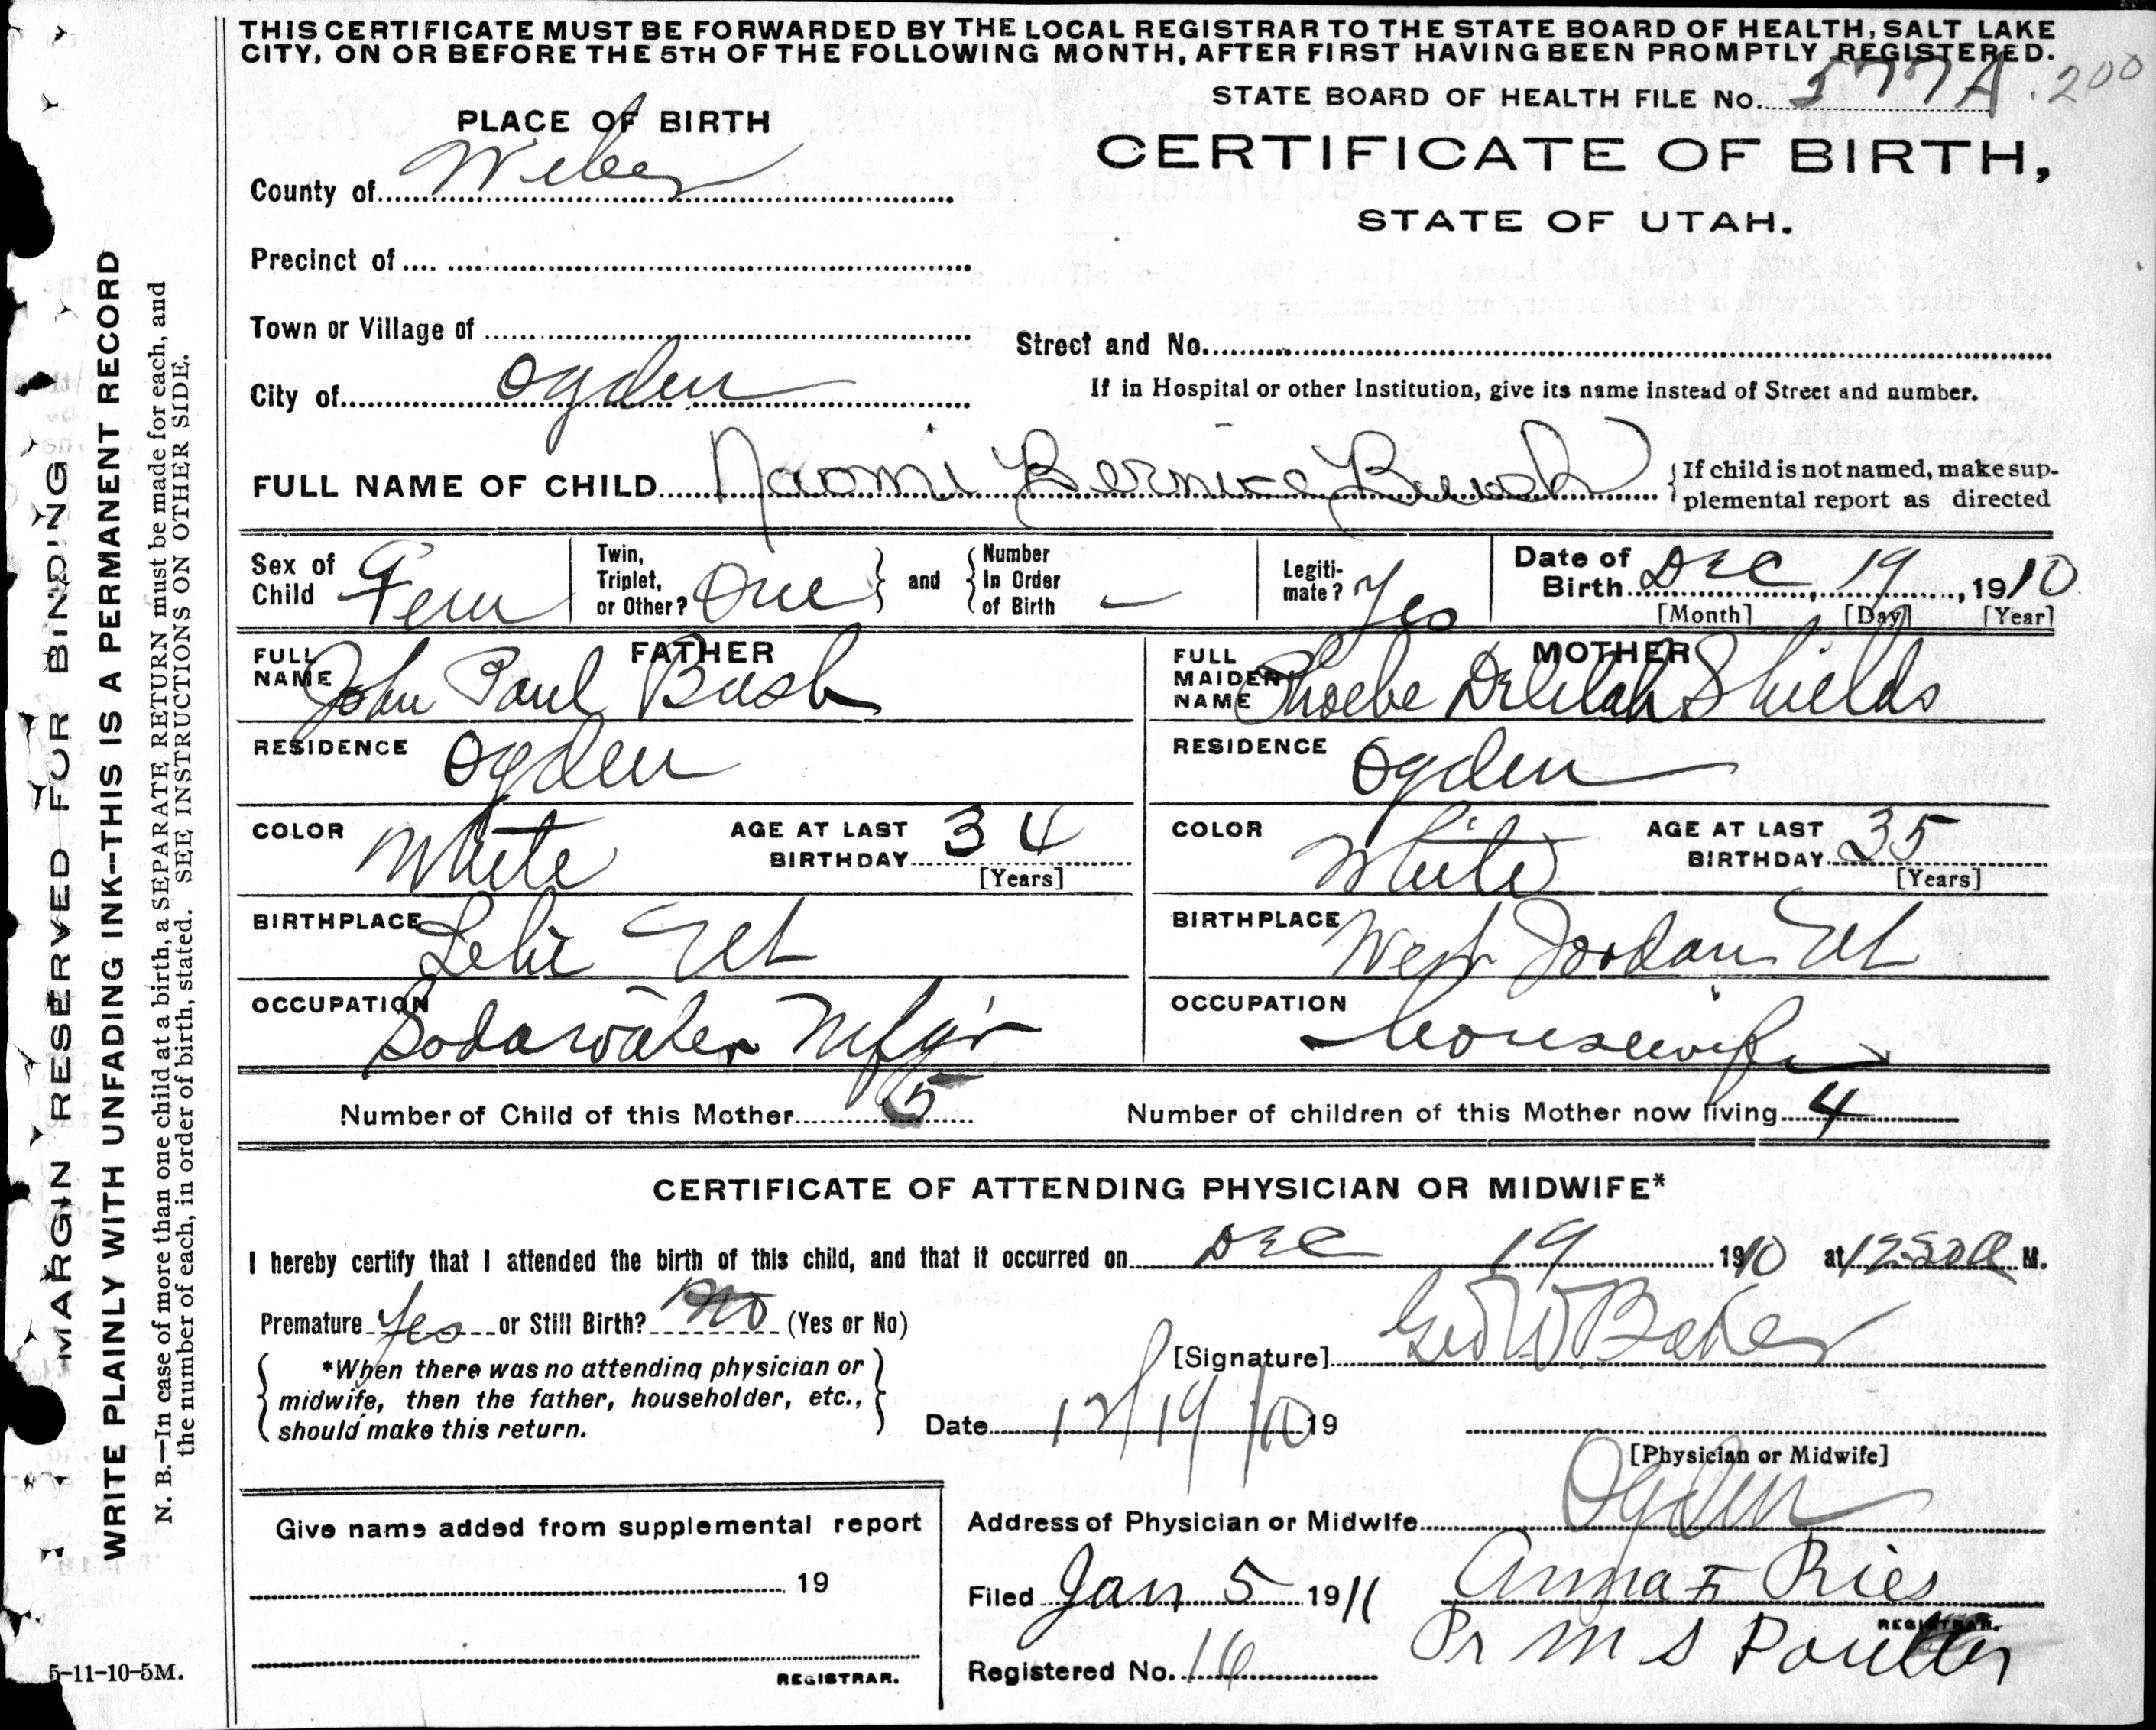 THIS CERTIFICATE MUST BE FORWARDED BY THE LOCAL REGISTRAR TO THE STATE BOARD OF HEALTH, SALT LAKE
CITY, ON OR BEFORE THE 5TH OF THE FOLLOWING MONTH, AFTER FIRST HAVING BEEN PROMPTLY REGISTERED.
STATE BOARD OF HEALTH FILE No. 577A. 200
PLACE OF BIRTH
CERTIFICATE OF BIRTH,
STATE OF UTAH.
County of Weber
Precinct of
Town or Village of
Street and No.
City of Ogden
If in Hospital or other Institution, give its name instead of Street and number.
FULL NAME OF CHILD Naomi Bernice Bush
If child is not named, make sup-
plemental report as directed
Sex of Child Fem
Twin, Triplet, or Other? One and Number In Order of Birth —
Legiti-mate? Yes
Date of Birth Dec 19, 1910
[Month] [Day] [Year]
FATHER
FULL NAME John Paul Bush
RESIDENCE Ogden
COLOR White AGE AT LAST BIRTHDAY 34
[Years]
BIRTHPLACE Lehi Ut
OCCUPATION Sodawater Mfg'r
MOTHER
FULL MAIDEN NAME Phoebe Delilah Shields
RESIDENCE Ogden
COLOR White AGE AT LAST BIRTHDAY 35
[Years]
BIRTHPLACE West Jordan Ut
OCCUPATION housewife
Number of Child of this Mother 5 Number of children of this Mother now living 4
CERTIFICATE OF ATTENDING PHYSICIAN OR MIDWIFE*
I hereby certify that I attended the birth of this child, and that it occurred on Dec 19 1910 at 12 30 a M.
Premature Yes or Still Birth? No (Yes or No)
*When there was no attending physician or
midwife, then the father, householder, etc.,
should make this return.
[Signature] Geo W Baker
Date 12/19/10 19
[Physician or Midwife]
Address of Physician or Midwife Ogden
Give name added from supplemental report
19
REGISTRAR.
Filed Jan 5 1911 Anna F Ries
REGISTRAR.
Pr M S Poulter
Registered No. 16
5-11-10-5M.
MARGIN RESERVED FOR BINDING
WRITE PLAINLY WITH UNFADING INK--THIS IS A PERMANENT RECORD
N. B.—In case of more than one child at a birth, a SEPARATE RETURN must be made for each, and
the number of each, in order of birth, stated. SEE INSTRUCTIONS ON OTHER SIDE.